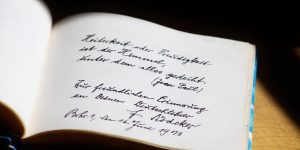 Heiterkeit oder Freudigkeit
ist der Himmel,
unter dem alles gedeiht.
(Jean Paul)
Zur freundlichen Erinnerung
an Deinen Deutschlehrer
F. Rädeker